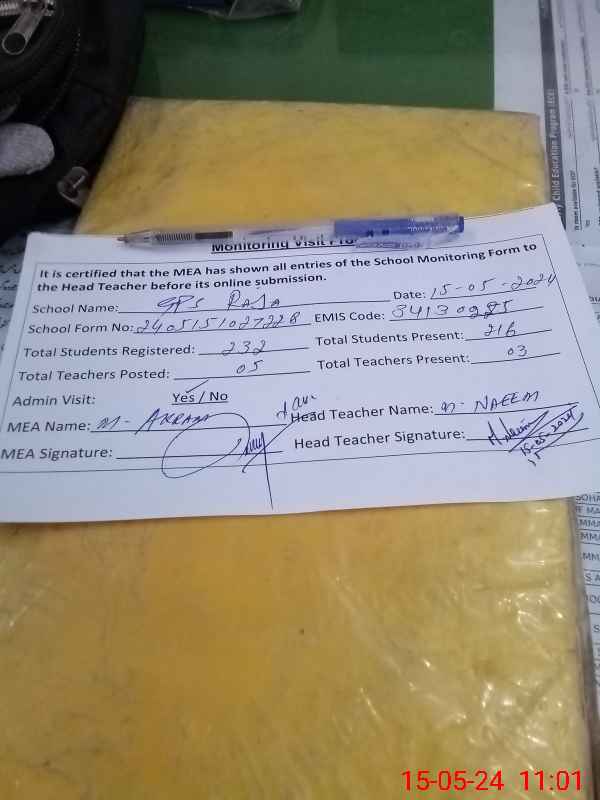 Monitoring Visit Pro
It is certified that the MEA has shown all entries of the School Monitoring Form to
the Head Teacher before its online submission.
School Name: GPS RAJA Date: 15-05-2024
School Form No: 2405151027228 EMIS Code: 34130285
Total Students Registered: 232 Total Students Present: 216
Total Teachers Posted: 05 Total Teachers Present: 03
Admin Visit: Yes / No
MEA Name: M- AKRAM Head Teacher Name: M- NAEEM
MEA Signature: Head Teacher Signature:
15-05-2024
Child Education Program (ECE)
15-05-24 11:01